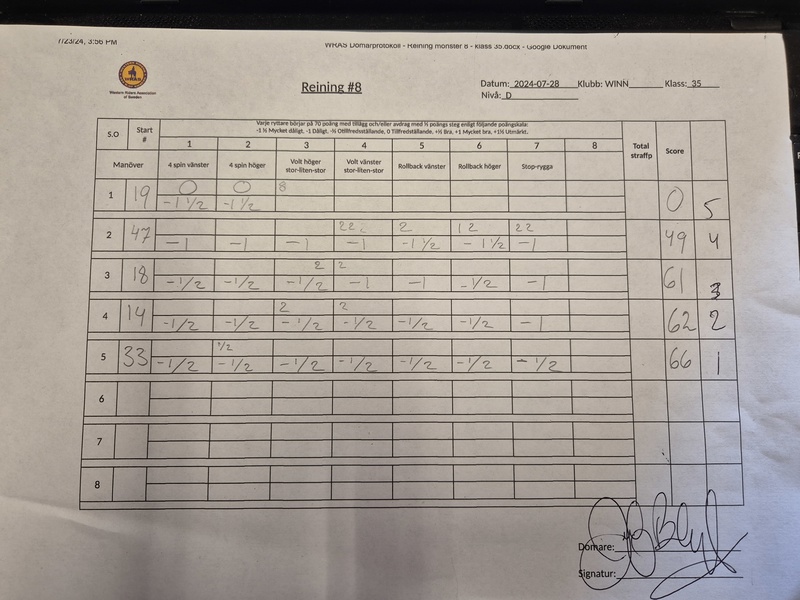 7/23/24, 3:56 PM WRAS Domarprotokoll - Reining mönster 8 - klass 35.docx - Google Dokument
WRAS
Western Riders Association
of Sweden
Reining #8
Datum: 2024-07-28 Klubb: WINN Klass: 35
Nivå: D
Varje ryttare börjar på 70 poäng med tillägg och/eller avdrag med ½ poängs steg enligt följande poängskala:
-1 ½ Mycket dåligt, -1 Dåligt, -½ Otillfredsställande, 0 Tillfredsställande, +½ Bra, +1 Mycket bra, +1½ Utmärkt.
S.O Start # 1 2 3 4 5 6 7 8 Total straffp Score
Manöver 4 spin vänster 4 spin höger Volt höger stor-liten-stor Volt vänster stor-liten-stor Rollback vänster Rollback höger Stop-rygga
0 0 8
1 19 -1 1/2 -1 1/2 0 5
22 2 12 22
2 47 -1 -1 -1 -1 -1 1/2 -1 1/2 -1 49 4
2 2
3 18 -1/2 -1/2 -1/2 -1 -1 -1/2 -1 61 3
2 2
4 14 -1/2 -1/2 -1/2 -1/2 -1/2 -1/2 -1 62 2
1/2
5 33 -1/2 -1/2 -1/2 -1/2 -1/2 -1/2 -1/2 66 1
6
7
8
Domare:
Signatur: